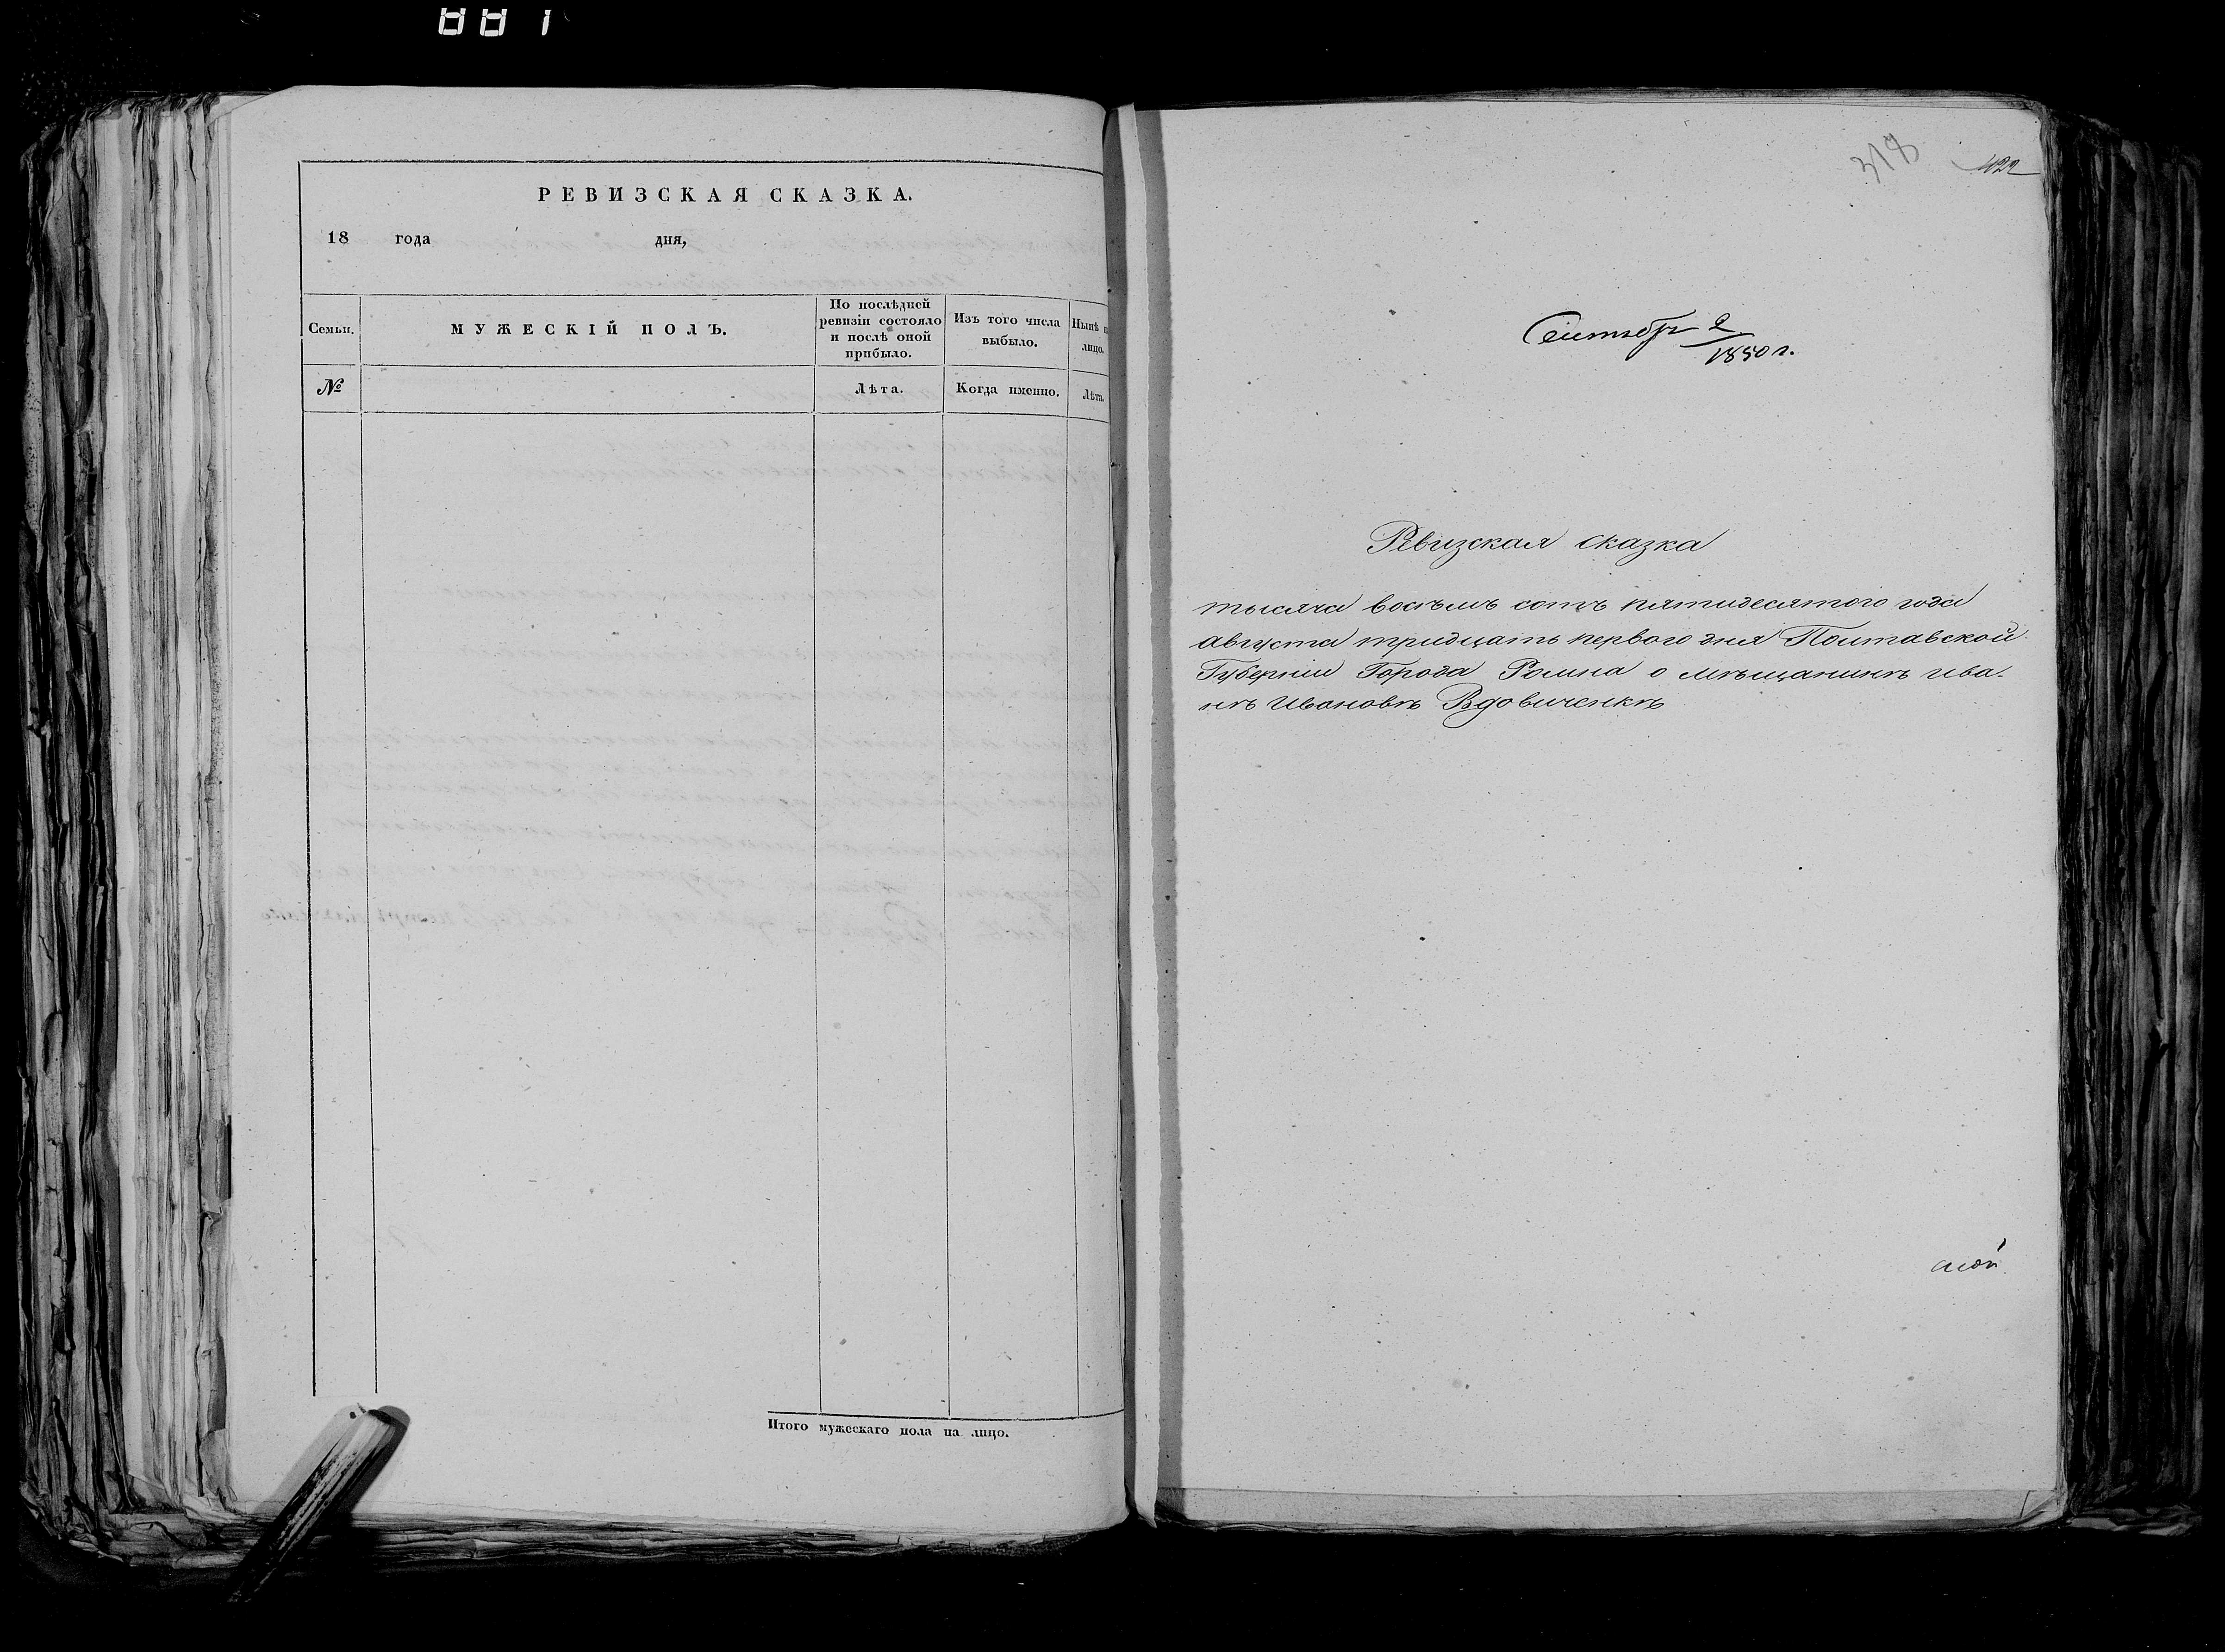 881
РЕВИЗСКАЯ СКАЗКА.
18 года дня,
Семьи.
МУЖЕСКІЙ ПОЛЪ.
По послѣдней
ревизіи состояло
и послѣ оной
прибыло.
Изъ того числа
выбыло.
Нынѣ
лицо.
№
Лѣта.
Когда именно.
Лѣта.
Итого мужескаго пола на лицо.
318
422
Сентябр 2
1850 г.
Ревизская сказка
тысяча восъемъ сотъ пятидесятого года
августа тридцать первого дня Полтавской
Губерніи Города Ромна о мѣщанинѣ ива-
нѣ Ивановѣ Вдовиченкѣ